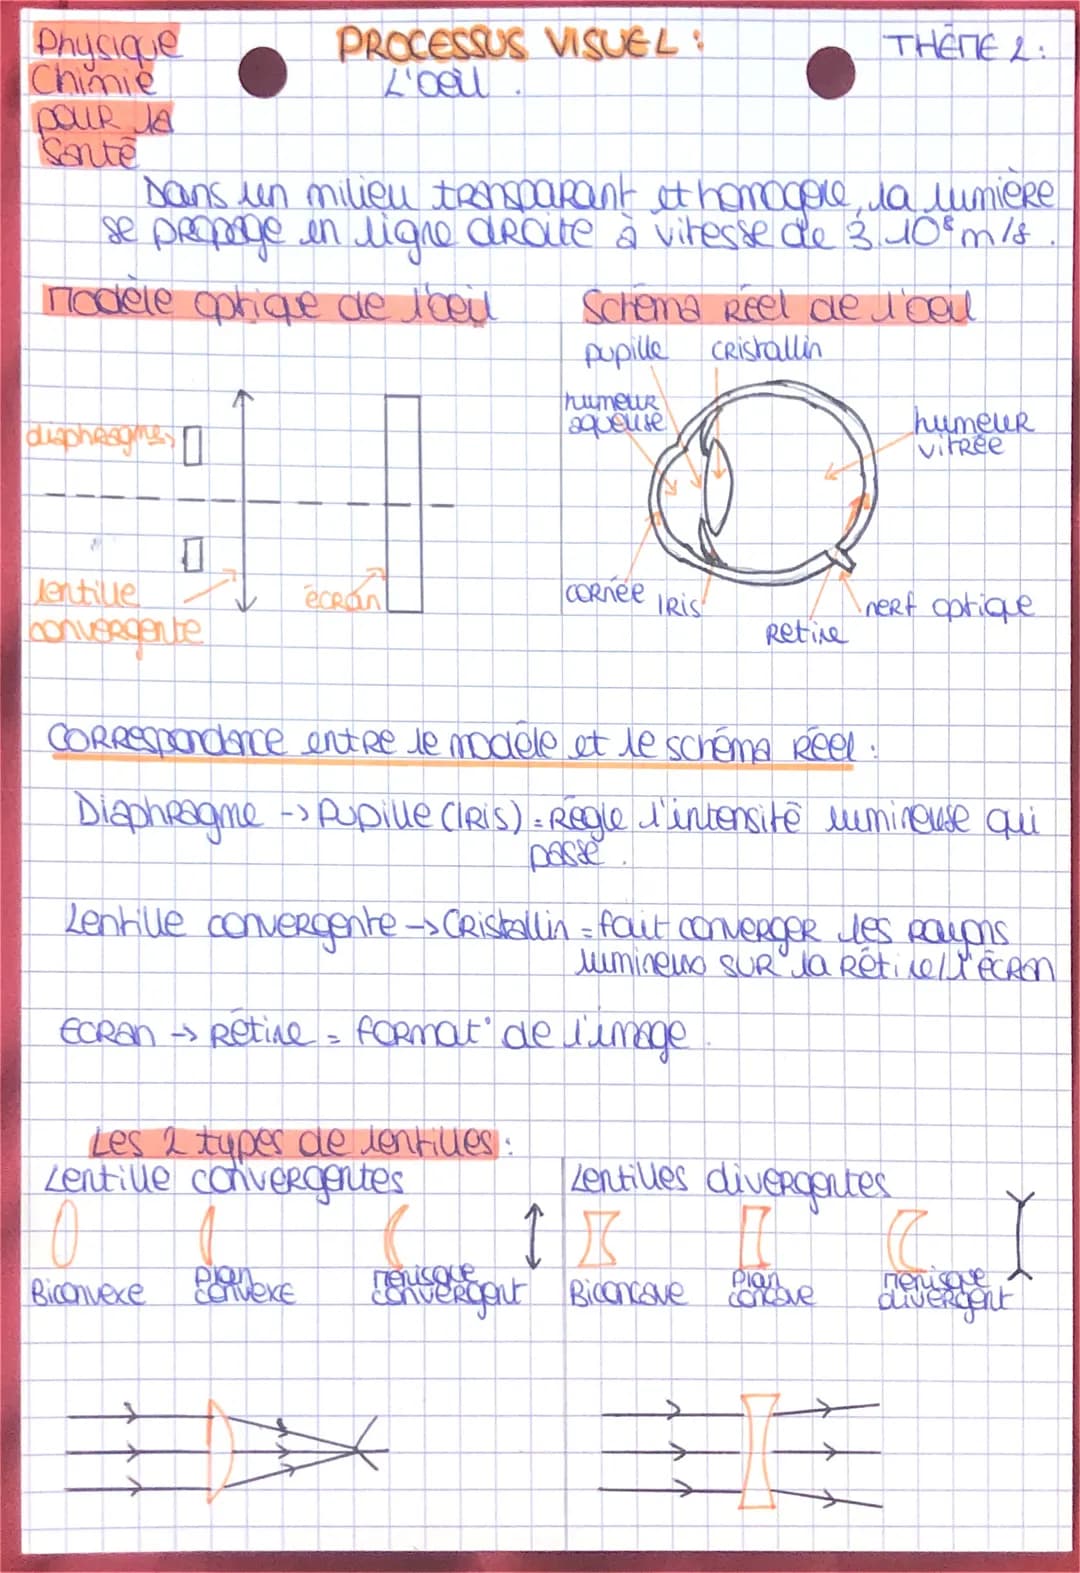 Physique
Chimie
pour la
Santé
PROCESSUS VISUEL :
L'oeil .
THÈME 2 :
Dans un milieu transparant et homogene, la lumière
se propage en ligne droite à vitesse de 3.10⁸ m/s .
Modèle optique de l'oeil
diaphragme
lentille
convergente
écran
Schéma Réel de l'oeil
pupille
cristallin
humeur
aqueuse
humeur
vitrée
cornée
IRIS
Retine
nerf optique
Correspondance entre le modèle et le schéma Réel :
Diaphragme -> Pupille (IRIS) = Règle l'intensité lumineuse qui
passe .
Lentille convergente -> Cristallin = fait converger les rayons
lumineux sur la Rétine/l'écran
Ecran -> Rétine = format° de l'image .
Les 2 types de lentilles :
Lentille convergentes
Biconvexe
plan
convexe
ménisque
convergent
Lentilles divergentes
Biconcave
plan
concave
ménisque
divergent